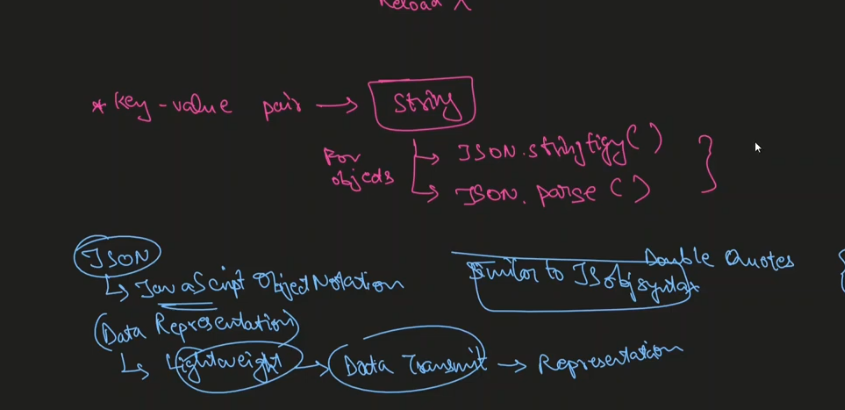 Reload X
* Key-value pair → String
For objects → JSON.stringfigy( )
→ JSON.parse ( )
JSON
↳ JavaScript Object Notation
Similar to JS obj syntax
Double Quotes
(Data Representation)
↳ Lightweight → Data Transmit → Representation